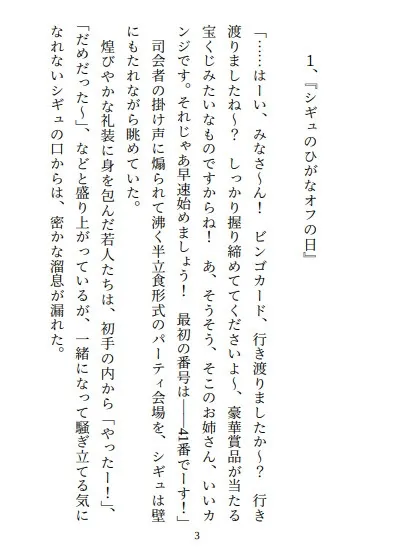 1、『シギュのひがなオフの日』
「……はーい、みなさ～ん！　ビンゴカード、行き渡りましたか～？　行き
渡りましたね～？　しっかり握り締めててくださいよ～、豪華賞品が当たる
宝くじみたいなものですからね！　あ、そうそう、そこのお姉さん、いいカ
ンジです。それじゃあ早速始めましょう！　最初の番号は――41番でーす！」
　司会者の掛け声に煽られて沸く半立食形式のパーティ会場を、シギュは壁
にもたれながら眺めていた。
　煌びやかな礼装に身を包んだ若人たちは、初手の内から「やったー！」、
「だめだった～」、などと盛り上がっているが、一緒になって騒ぎ立てる気に
なれないシギュの口からは、密かな溜息が漏れた。
3